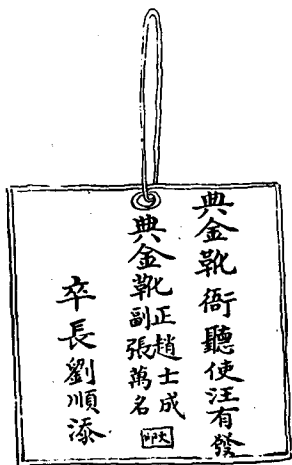 典金靴衙聽使汪有發
典金靴正趙士成副張萬名
卒長劉順添